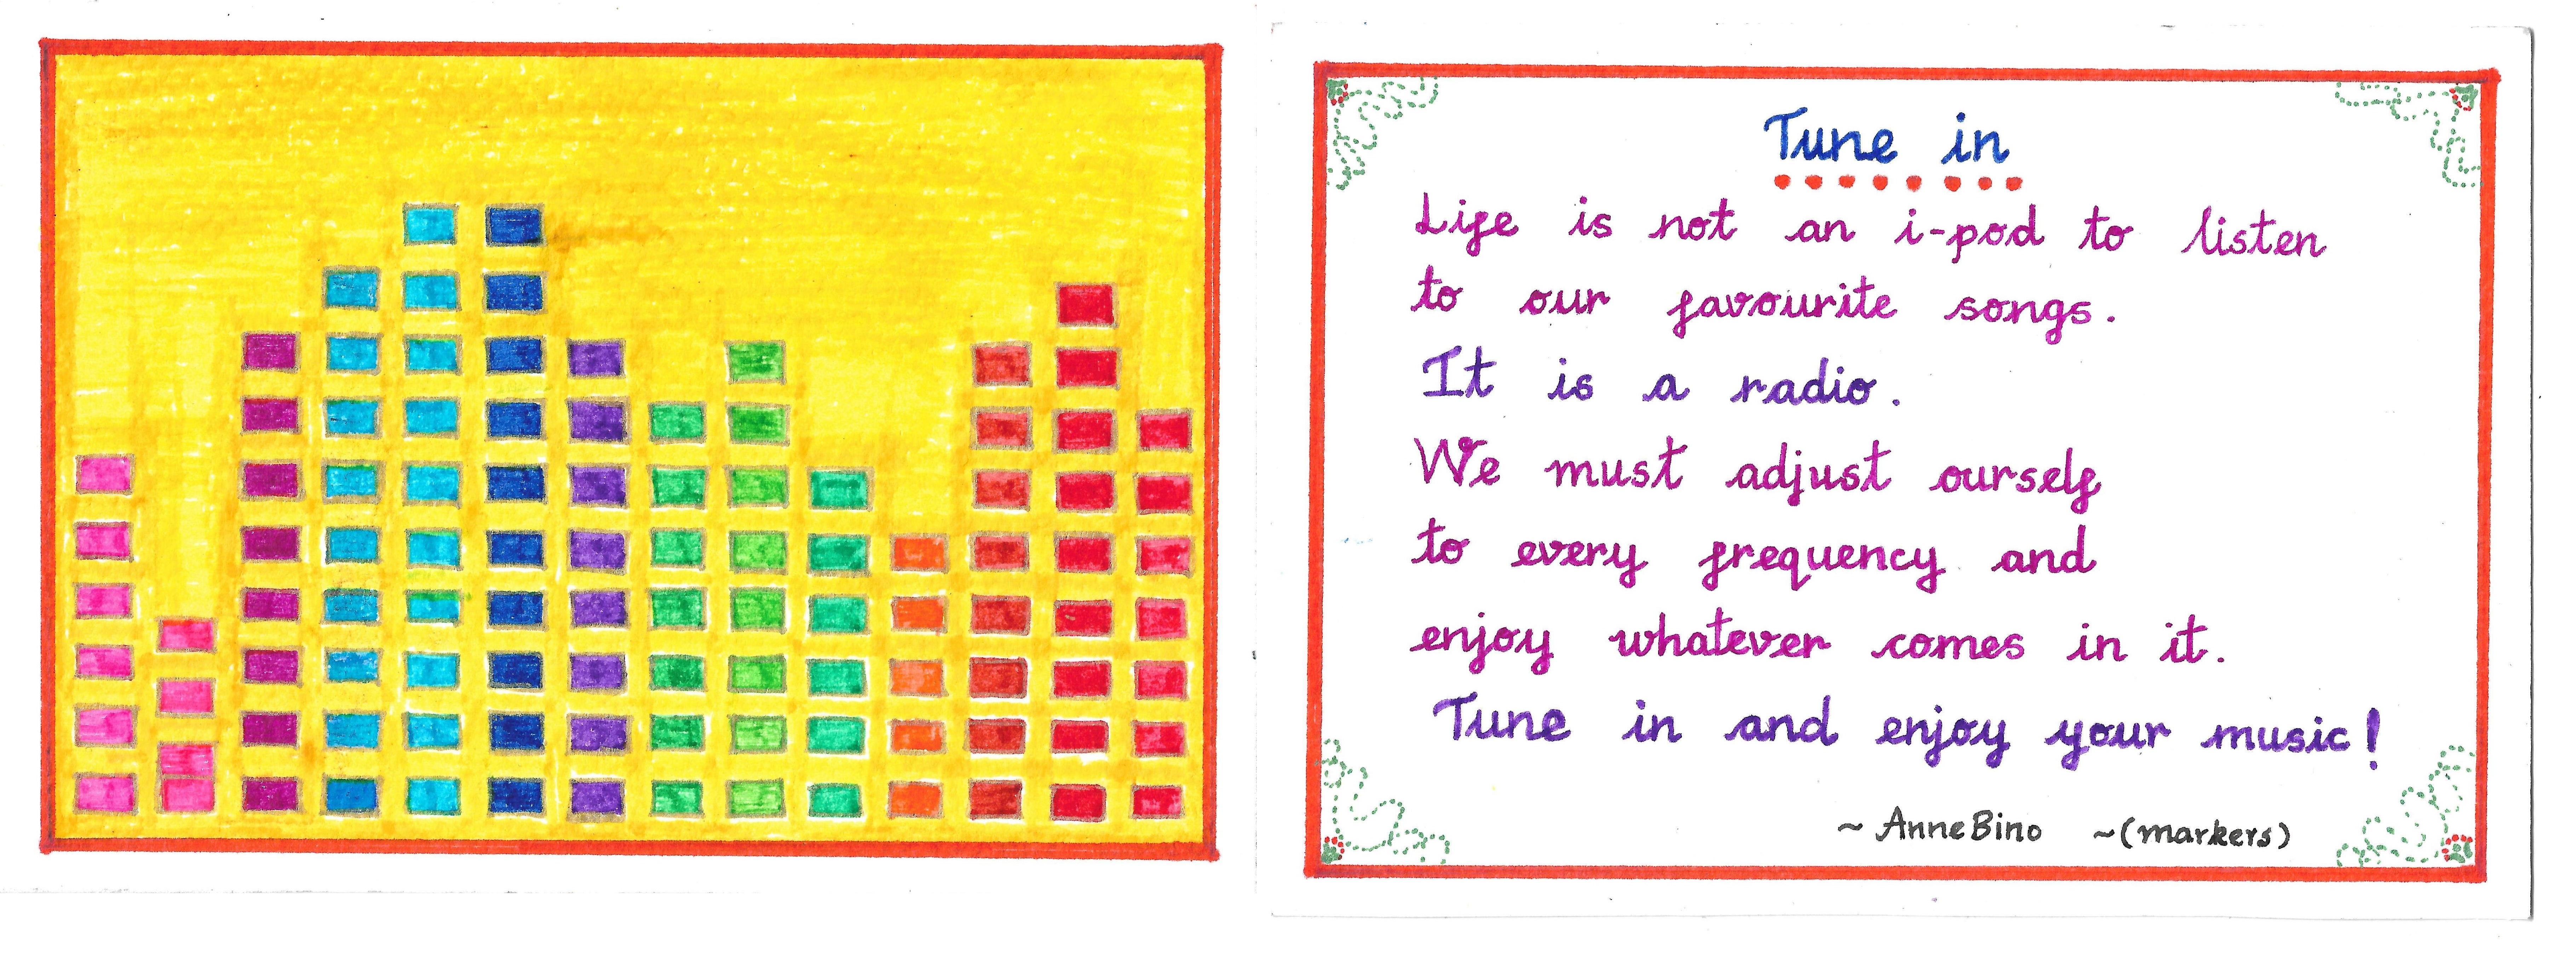 Tune in
Life is not an i-pod to listen
to our favourite songs.
It is a radio.
We must adjust ourself
to every frequency and
enjoy whatever comes in it.
Tune in and enjoy your music!
~ AnneBino ~(markers)